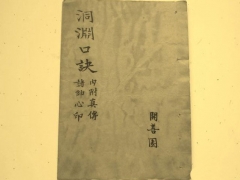 洞淵口訣
內附真傳
諸師心印
開善園